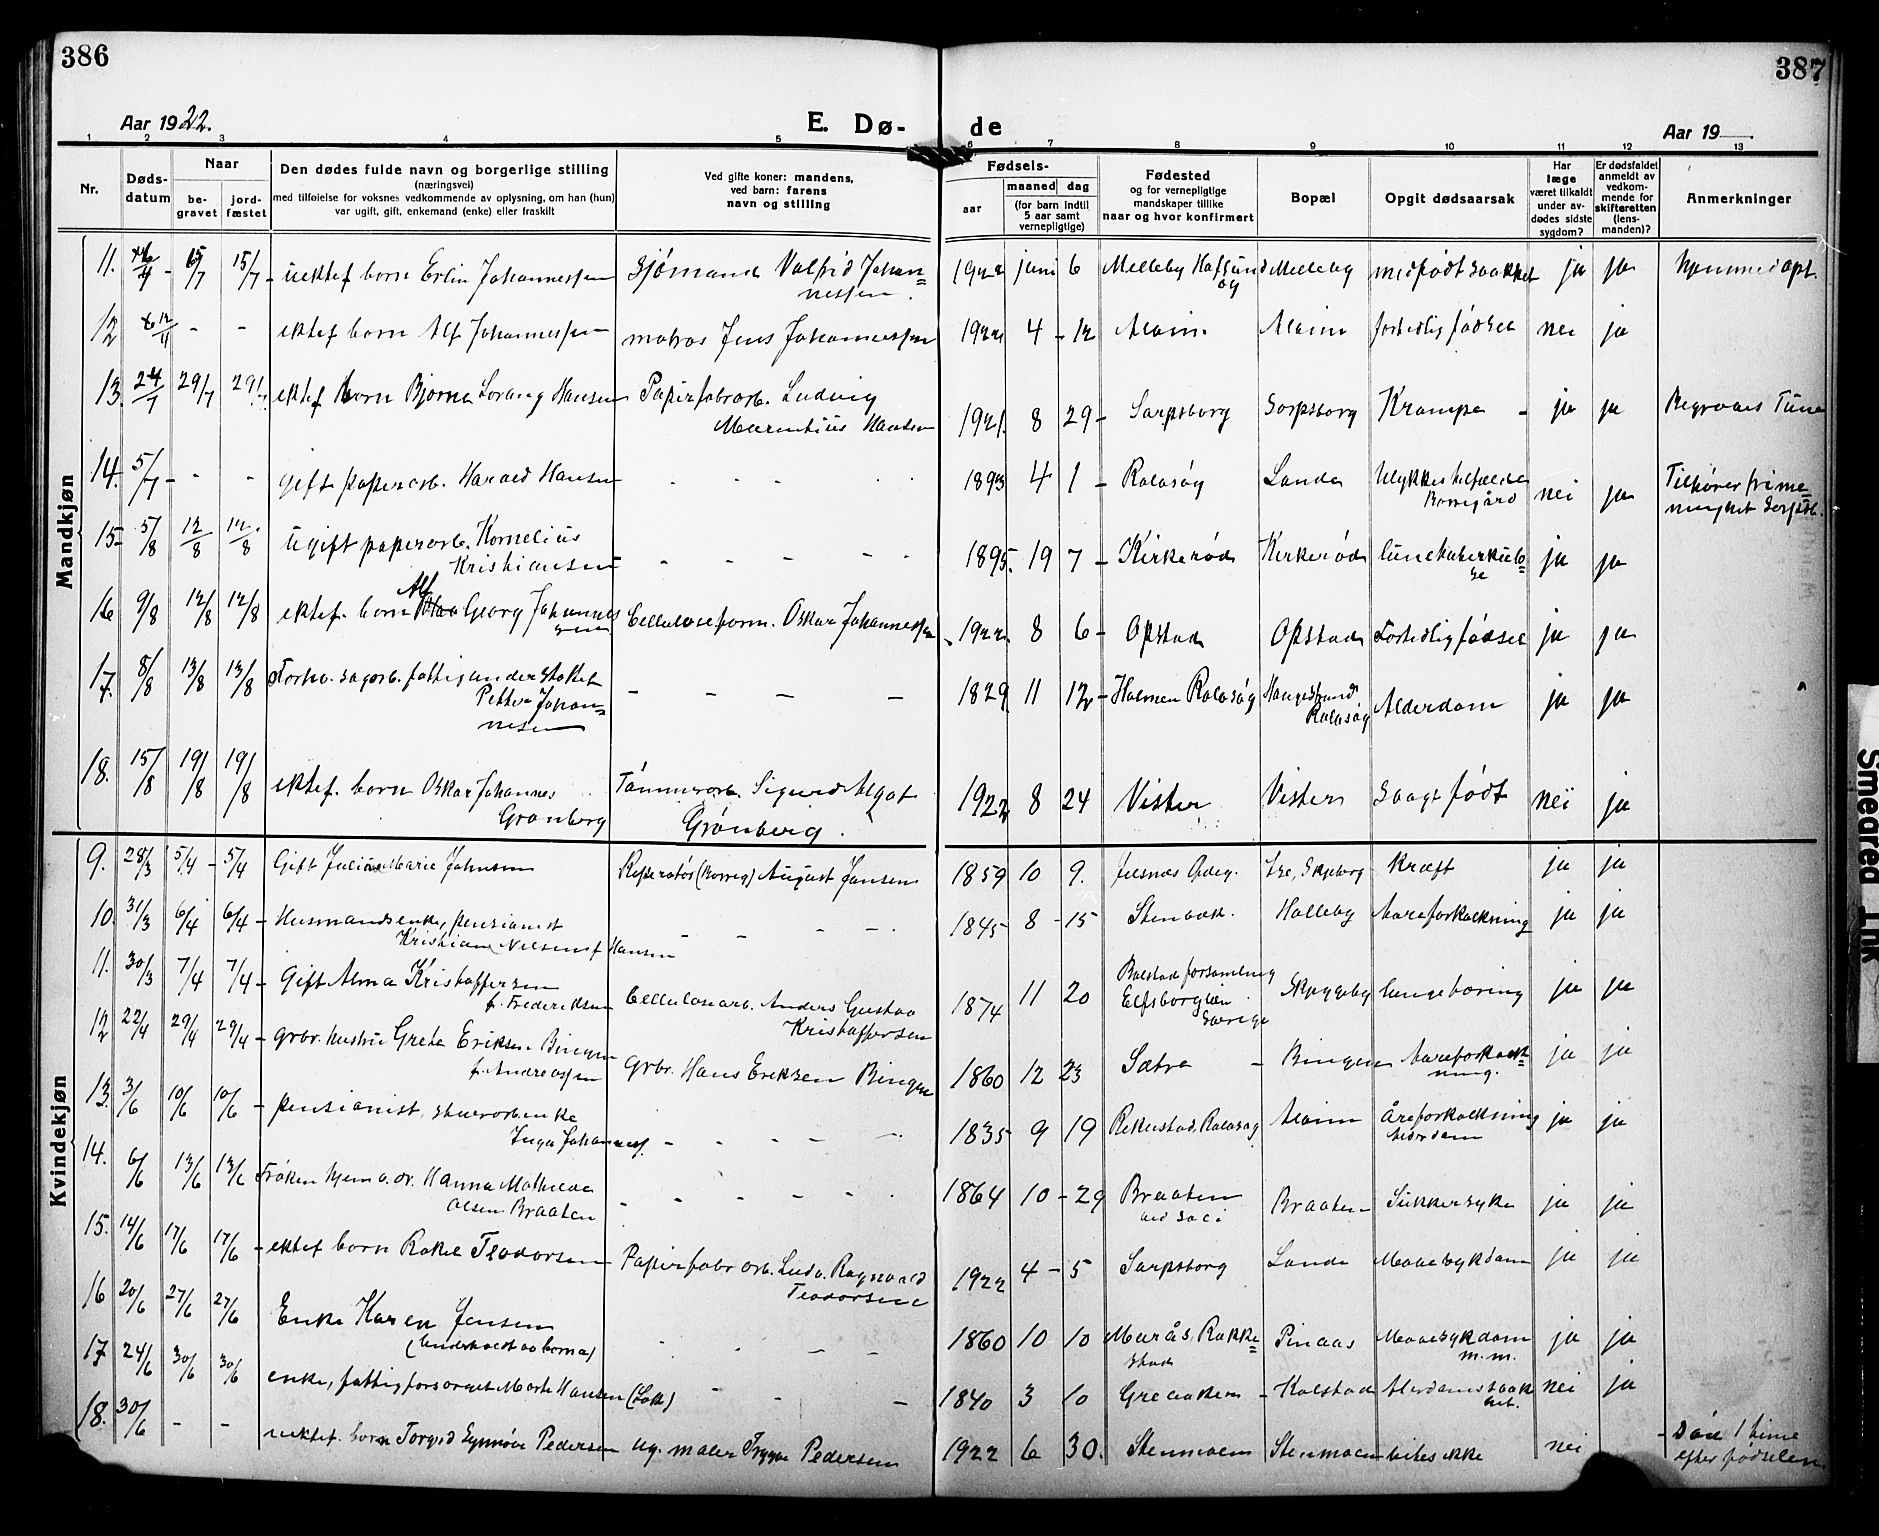 386
387
Aar 1922.
E. Dø-
de
Aar 19
1 2 3 4 5 6 7 8 9 10 11 12 13
Nr.
Døds-
datum
Naar
be-
gravet
jord-
fæstet
Den dødes fulde navn og borgerlige stilling
(næringsvei)
med tilføielse for voksnes vedkommende av oplysning, om han (hun)
var ugift, gift, enkemand (enke) eller fraskilt
Ved gifte koner: mandens,
ved barn: farens
navn og stilling
Fødsels-
aar
maaned
dag
(for barn indtil
5 aar samt
vernepligtige)
Fødested
og for vernepligtige
mandskaper tillike
naar og hvor konfirmert
Bopæl
Opgit dødsaarsak
Har
læge
været tilkaldt
under av-
dødes sidste
sygdom?
Er dødsfaldet
anmeldt av
vedkom-
mende for
skifteretten
(lens-
manden)?
Anmerkninger
Mandkjøn
11. 15/7 uektef born Erlin Johannessen Sjømand Valfrid Johan=
nessen. 1922 juni 6 Melleby Hafslund Melleby medfødt svakhet ja ja hjemmedøpt.
12 - - ektef born Alf Johannessen matros Jens Johannessen 1922 4 - 12 Alvim Alvim fortidlig fødsel nei ja
13. 24/7 29/7 29/7 ektef born Bjørne Lorang Hansen Papirfabrarb. Ludvig
Marentius Hansen 1921. 8 29 - Sarpsborg Sarpsborg Krampe - ja ja Begraves Tune
14. 5/7 - - - gift papirarb. Harald Hansen - - - 1893 4 1 - Rolvsøy Lande Ulykkestilfælde
Borregård nei ja Tilhører frime=
nighet Sarpsb.
15- 5/8 12/8 12/8 Ugift papirarb. Kornelius
Kristiansen - - - - 1895. 19 7 - Kirkerød Kirkerød lungetuberkulo=
se ja ja
16 9/8 12/8 12/8 ektef. born Alf Georg Johannes
sen Celluloseform. Oskar Johannessen 1922. 8 6 - Opstad Opstad Fortidlig fødsel ja ja
17. 8/8 13/8 13/8 Forhv. sagarb. fattigunderstøttet
Petter Johan=
nesen - - - - 1829 11 12 - Holmen Rolvsøy Haugestrand
Rolvsøy Alderdom ja ja
18. 15/8 19/8 19/8 ektef. born Oskar Johannes
Grønberg Tømmerarb. Sigurd Algot
Grønberg. 1922 8 24 Vister Vister Svagt født nei ja
Kvindekjøn
9. 28/3 5/4 - 5/4 Gift Juliane Marie Johnsen Reperatør (Borreg) August Jansen 1859 10 9. Jelsnæs Ødeg. Ise, Skjeberg Kræft ja ja
10. 31/3 6/4 6/4 - Husmandsenke, pensionist
Kristiane Nilsen f Hansen - - - - 1845 8 - 15 Stenbæk. Halleby Aareforkalkning ja ja
11. 30/3 7/4 7/4 - Gift Alma Kristoffersen
f. Frederiksen Cellulosearb. Anders Gustav
Kristoffersen 1874 11 20 Bolstad forsamling
Elfsborg län
Sverige Skyggeby Lungebetændelse ja ja
12 22/4 29/4 29/4 - grbr. hustru Grete Eriksen Bingen
f. Andreassen Grbr. Hans Eriksen Bingen 1860 12 23 Sætra - Bingen Aareforkalk=
ning. ja ja
13. 3/6 10/6 10/6 - pensionist, stuerarb.enke
Inga Johannes. - - - - 1835 9 19 Rekustad, Rolvsøy Alvim Åreforkalkning
Alderdom ja ja
14. 6/6 13/6 13/6 Frøken hjemv. dr. Hanna Mathilde
Olsen Braaten - - - - 1864 10 - 29 Braaten
ved Soli Braaten - Sukkersyke ja ja
15. 14/6 17/6 17/6 - ektef born Rakel Teodorsen Papirfabr arb. Ludv. Ragnvald
Teodorsen 1922 4 - 5 Sarpsborg Lande Mavesykdom ja ja
16 20/6 27/6 27/6 Enke Karen Jensen
(Underholdt av børna) - - - - 1860 10 10 Maräs, Rakke=
stad Pinaas Mavesykdom
m.m. ja ja
17 24/6 30/6 30/6 enke, fattigforsørget Marte Hansen (Løk) - - 1840 3 10 Greaaker - Kalstad Alderdomssvak
het. nei ja
18. 30/6 - - uektef. born Torgid Synnøve Pedersen ug. maler Trygve Pedersen 1922 6 30. Stenmoen Stenmoen vites ikke nei - døde 1 time
efter fødselen.
Smedrød Ink